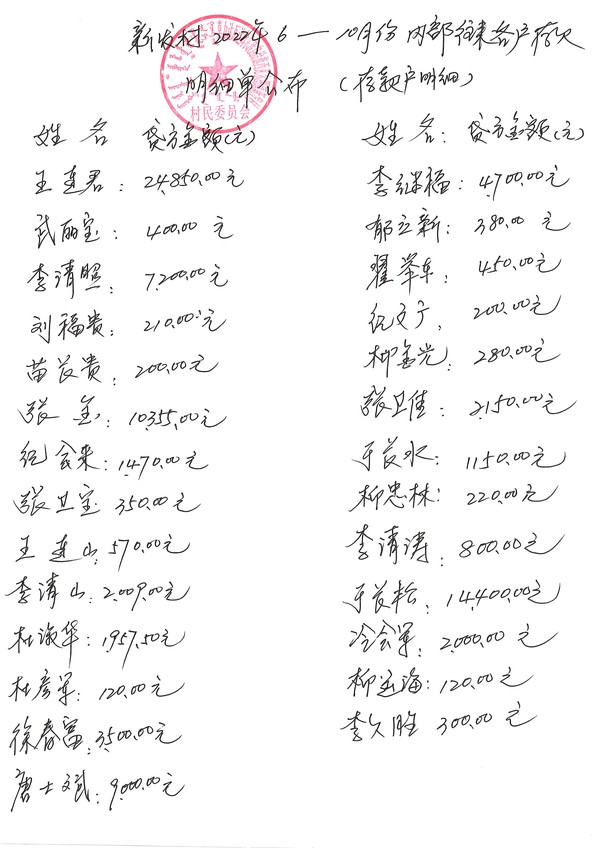 新发村2022年6—10月份内部往来各户存欠
明细单公布 (存款户明细)
村民委员会
姓名 贷方金额(元)
王连君: 24,850.00元
武丽宝: 400.00元
李清照: 7,200.00元
刘福贵: 210.00元
苗长贵: 200.00元
张金: 10,355.00元
纪会来: 1,470.00元
张卫宝 350.00元
王连山: 570.00元
李清山: 2,009.00元
杜淑华: 1,957.50元
杜彦军: 120.00元
徐春富: 3,500.00元
唐士斌: 9,000.00元
姓名: 贷方金额(元)
李继福: 4,700.00元
郁立新: 380.00元
翟举车: 450.00元
纪文广, 200.00元
柳金光: 280.00元
张卫佳: 2,150.00元
于长水: 1150.00元
柳忠林: 220.00元
李清涛: 800.00元
于长松, 14,400.00元
冷会军, 2,000.00元
柳玉海: 120.00元
李久胜 300.00元